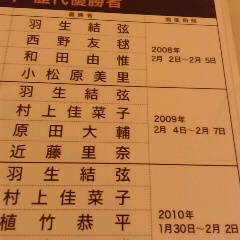 歴代優勝者
優勝者 開催期間
羽生結弦
西野友毬
和田由惟
小松原美里
2008年
2月 2日~2月 5日
羽生結弦
村上佳菜子
原田大輔
近藤里奈
2009年
2月 4日~2月 7日
羽生結弦
村上佳菜子
植竹恭平
2010年
1月30日~2月 2日